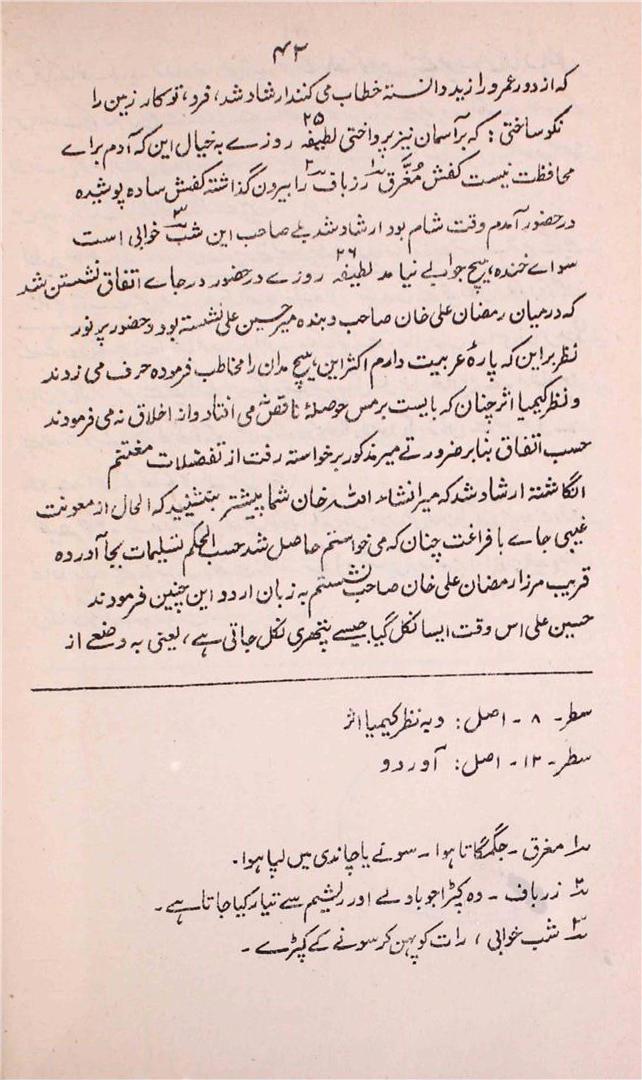 ۴۲
که از دور عمرو را زید دانسته خطاب می کنند ارشاد شد، فرد، تو کار زمین را
نکو ساختی؛ که بر آسمان نیز پرداختی لطیفه ۲۵ روزے به خیال این که آدم براے
محافظت نیست کفش مُغَرَّق ۱؎ زرباف ۲؎ را بیرون گذاشته کفش ساده پوشیده
در حضور آمدم وقت شام بود ارشاد شد بلے صاحب این شب ۳؎ خوابی است
سواے خنده، ہیچ جوابے نیامد لطیفه ۲۶ روزے در حضور در جاے اتفاق نشستن شد
که درمیان رمضان علی خان صاحب و بنده میر حسین علی نشسته بود و حضور پر نور
نظر بر این که پارۂ عربیت دارم اکثر این، ہیچ مدان را مخاطب فرموده حرف می زدند
و نظر کیمیا اثر چنان که بایست بر مس حوصلۂ ناقصش می افتاد و از اخلاق نه می فرمودند
حسب اتفاق بنابر ضرورتے میر مذکور برخواسته رفت از تفضلات مغتنم
انگاشته ارشاد شد که میر انشاء اللہ خان شما پیشتر بنشینید که الحال از معونت
غیبی جاے با فراغت چنان که می خواستم حاصل شد حسب الحکم تسلیمات بجا آورده
قریب مرزا رمضان علی خان صاحب نشستم به زبان اردو این چنین فرمودند
حسین علی اس وقت ایسا نکل گیا جیسے پتھری نکل جاتی ہے، یعنی به وضعے از
سطر۔ ۸ ۔ اصل: و به نظر کیمیا اثر
سطر۔ ۱۲۔ اصل: آوردو
۱؎ مغرق ۔ جگمگاتا ہوا ۔ سونے یا چاندی میں لپا ہوا۔
۲؎ زرباف ۔ وہ کپڑا جو بادلے اور ریشم سے تیار کیا جاتا ہے۔
۳؎ شب خوابی، رات کو پہن کر سونے کے کپڑے۔